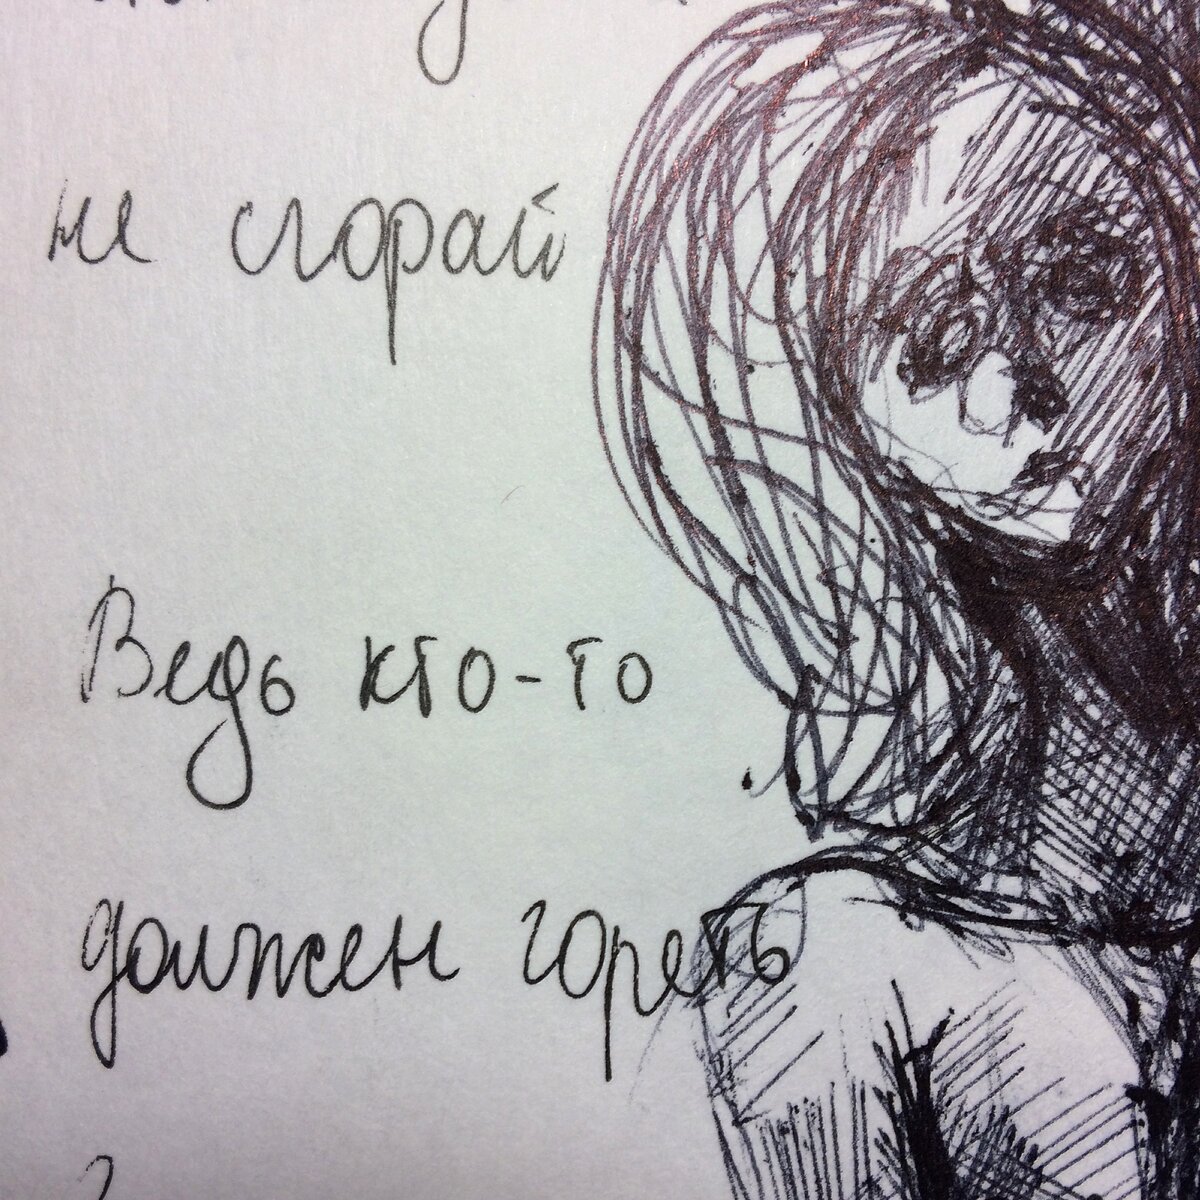 не сгорай
Ведь кто-то
должен гореть